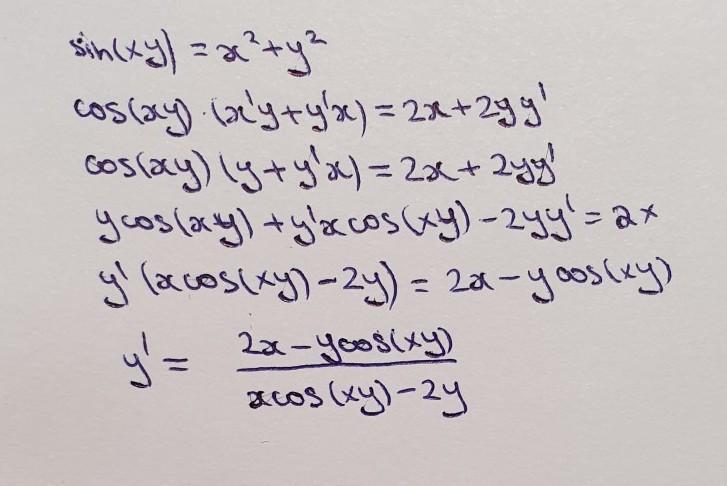 sin(xy) = x²+y²
cos(xy) · (x'y+y'x) = 2x+2yy'
cos(xy) (y+y'x) = 2x+2yy'
ycos(xy) + y'xcos(xy) - 2yy' = 2x
y' (xcos(xy) - 2y) = 2x - ycos(xy)
y' = (2x - ycos(xy))/(xcos(xy) - 2y)